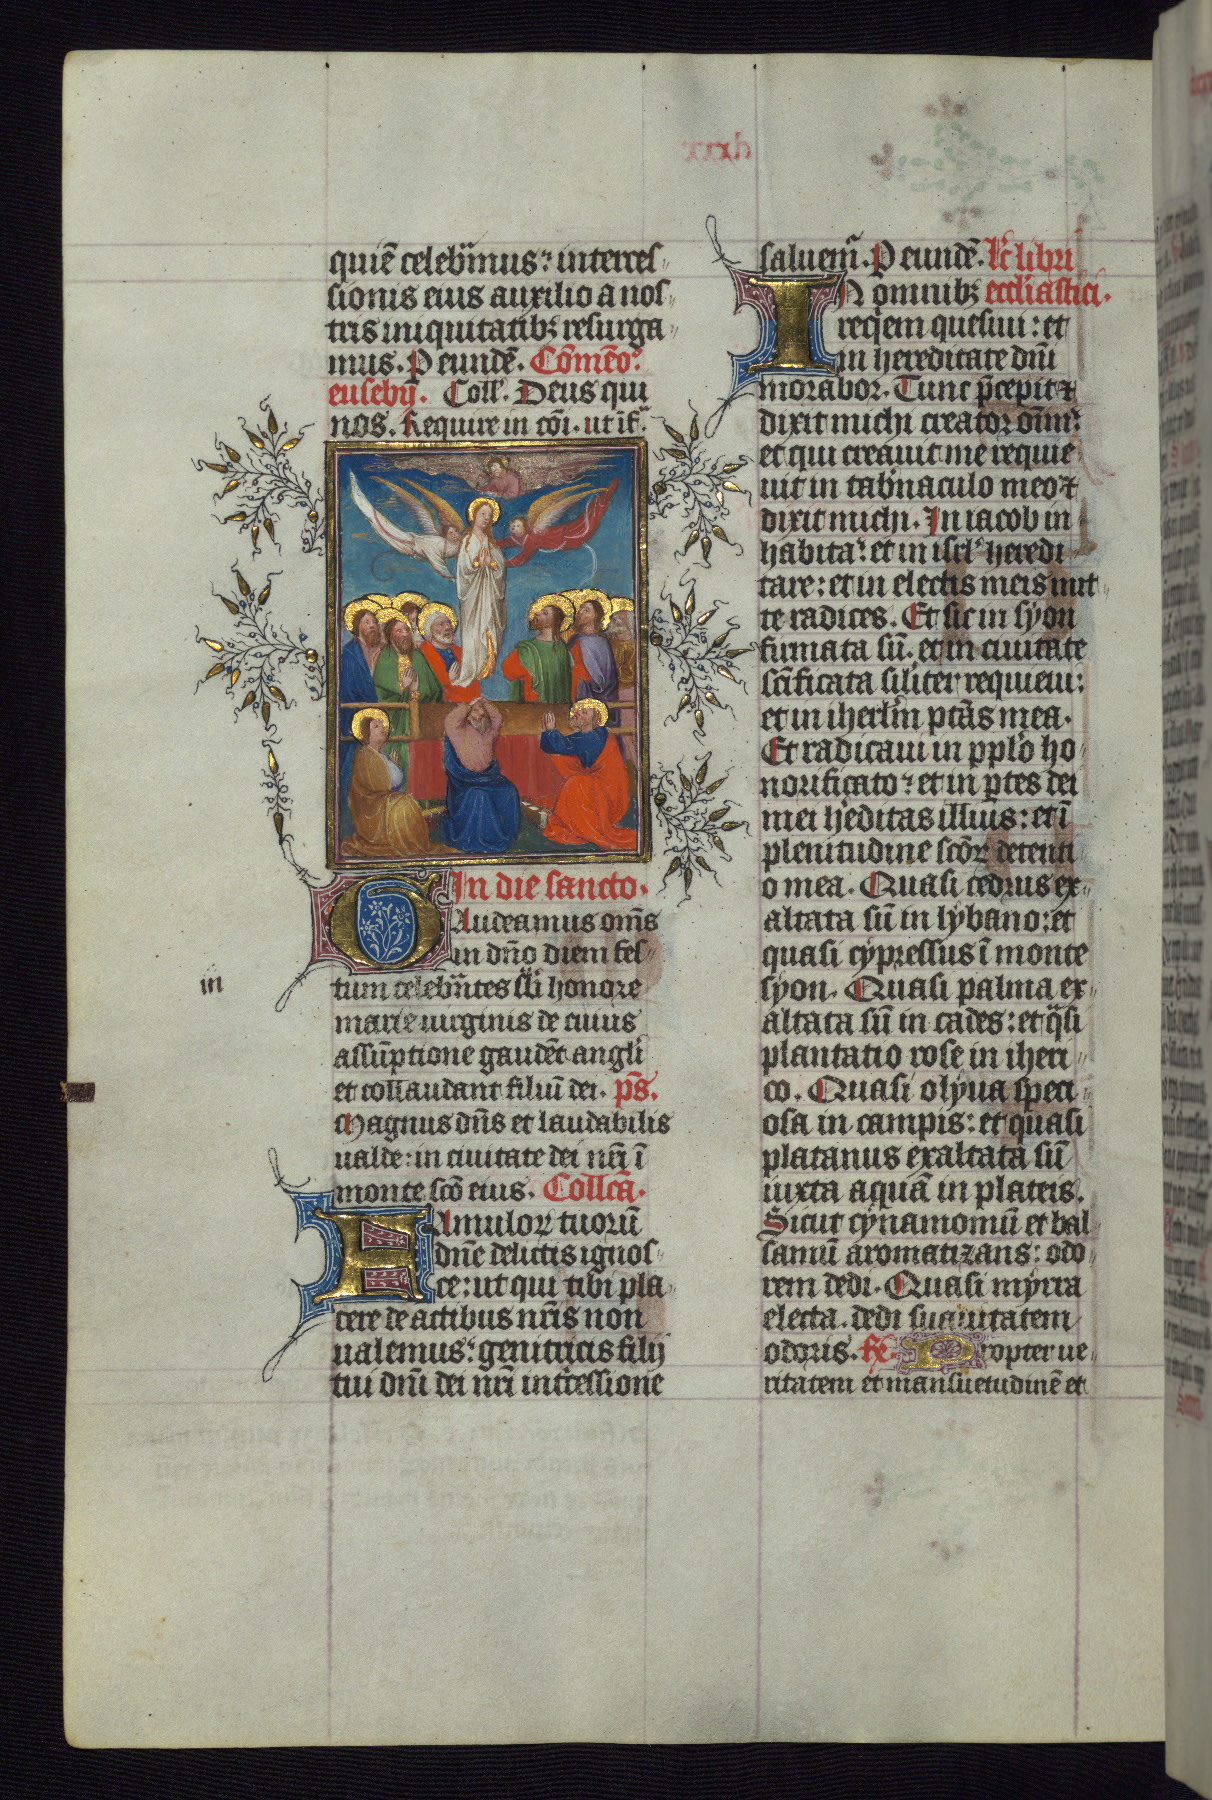 quiē celebrimus: interces-
sionis eius auxilio a nos-
tris iniquitatibꝫ resurga-
mus. P eundē. Cōmēo.
eusebij. Coll. Deus qui
nos. Require in cōi. ut iſ.
In die sancto.
Gaudeamus om̄s
in dn̄o diem fes-
tum celebrātes sub honore
in
marie uirginis de cuius
assūptione gaudēt angli
et collaudant filiū dei. ps̄.
Magnus dn̄s et laudabilis
ualde: in ciuitate dei nr̄i ī
monte scō eius. Collcā.
Famuloꝝ tuorū
dn̄e delictis ignos-
ce: ut qui tibi pla-
cere de actibus nr̄is non
ualemus: genitricis filij
tui dn̄i dei nr̄i int̄cessione
saluem̄. P eundē. Lc̄ libri
IN omnibꝫ eccl̄iastici.
req̄em quesiui: et
in hereditate dn̄i
morabor. Tunc p̄cepit ⁊
dixit michi creator om̄m:
et qui creauit me requie-
uit in tab̄naculo meo ⁊
dixit michi. In iacob in
habita: et in isrl̄ heredi-
tare: et in electis meis mit-
te radices. Et sic in syon
firmata sū. et in ciuitate
sc̄ificata sil̄iter requieui:
et in iherl̄m ptās mea.
Et radicaui in ppl̄o ho-
norificato: et in ꝑtes dei
mei h̄editas illius: et ī
plenitudine scōꝝ detenti
o mea. Quasi cedrus ex-
altata sū in lybano: et
quasi cypressus ī monte
syon. Quasi palma ex-
altata sū in cades: et q̄si
plantatio rose in iheri-
co. Quasi olyua speci-
osa in campis: et quasi
platanus exaltata sū
iuxta aquā in plateis.
Sicut cynamomū et bal-
samū aromatizans: odo-
rem dedi. Quasi myrra
electa. dedi suauitatem
odoris. R̄e. Propter ue-
ritatem et mansuetudinē et